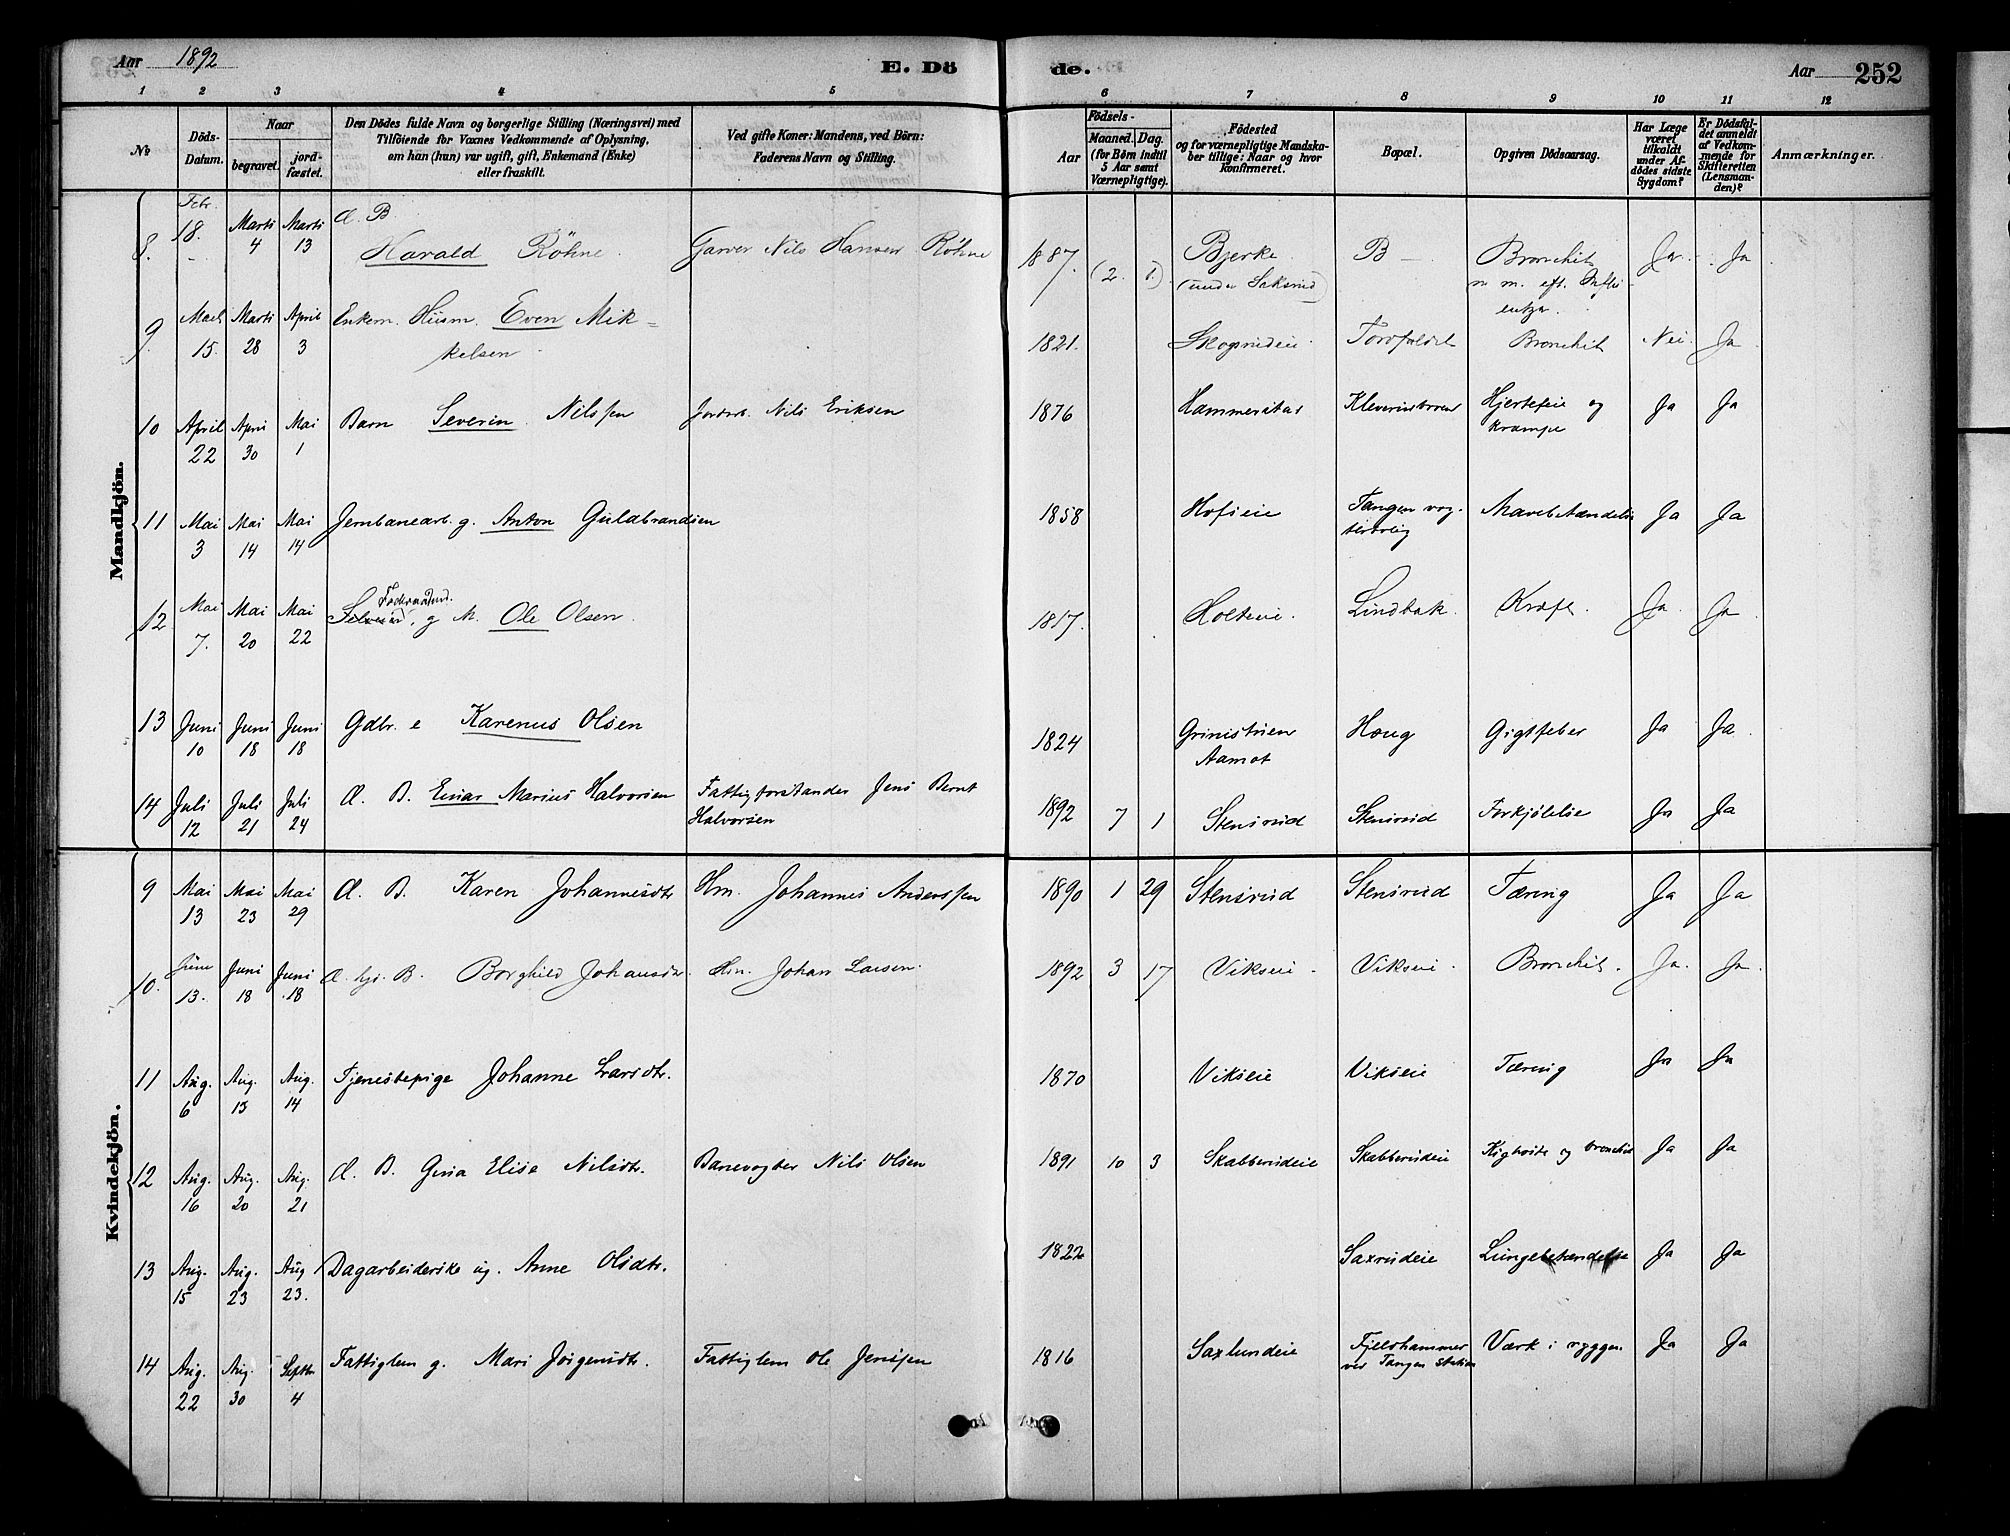 Aar 1892 E. Dö de. Aar 252
1 2 3 4 5 6 7 8 9 10 11 12
No
Döds-Datum.
Naar
begravet.
jord-fæstet.
Den Dödes fulde Navn og borgerlige Stilling (Næringsvei) med
Tilföiende for Voxnes Vedkommende af Oplysning,
om han (hun) var ugift, gift, Enkemand (Enke)
eller fraskilt.
Ved gifte Koner: Mandens, ved Börn:
Faderens Navn og Stilling.
Födsels-
Aar
Maaned. Dag.
(for Börn indtil
5 Aar samt
Værnepligtige).
Födested
og for værnepligtige Mandska-
ber tillige: Naar og hvor
konfirmeret.
Bopæl.
Opgiven Dödsaarsag.
Har Læge
været
tilkaldt
under Af-
dödes sidste
Sygdom?
Er Dödsfal-
det anmeldt
af Vedkom-
mende for
Skifteretten
(Lensman-
den)?
Anmærkninger.
Mandkjön.
8. Febr. 18. Marts 4 Marts 13 Æ. B. Harald Röhne Garver Nils Hansen Röhne 1887. (2. 1.) Bjerke (under Saksrud) B — Bronchit m. m. eft. Influentza. Ja Ja
9. Marts 15. Marts 28 April 3 Enkem. Husm. Even Mik=
kelsen 1821. Skogsrudeie Bronchit Nei Ja
10 April 22 April 30 Mai 1 Barn Severin Nilssen Jordarb. Nils Eriksen 1876 Hammerstad Hjertefeil og
krampe Ja Ja
11 Mai 3 Mai 14 Mai 14 Jernbanearb. g. Anton Guldbrandsen 1858 Hofseie Tangen vog-
terbolig Mavebetændelse Ja Ja
12 Mai 7. Mai 20 Mai 22 Föderaadsmd. g. M. Ole Olsen. 1817. Holteie. Lindbak. Kræft. Ja. Ja
13 Juni 10 Juni 18 Juni 18 Gdbr. e Karenus Olsen 1824 Aamot Houg Gigtfeber Ja Ja
14 Juli 12 Juli 21 Juli 24 Æ. B. Einar Marius Halvorsen Fattigforstander Jens Bernt
Halvorsen 1892 7 1 Stensrud Stensrud Forkjölelse Ja Ja
Kvindekjön.
9 Mai 13 Mai 23 Mai 29 Æ. B. Karen Johannesdtr Hm. Johannes Anderssen 1890 1 29 Stensrud Stensrud Tæring Ja Ja
10. Juni 13. Juni 18 Juni 18 Æ. hjd. B. Borghild Johansdtr. Hm. Johan Larsen. 1892 3 17 Vikseie. Vikseie. Bronchit. Ja. Ja.
11 Aug. 6 Aug. 13 Aug. 14 Tjenestepige Johanne Larsdtr. 1870 Vikseie Vikseie Tæring Ja Ja
12 Aug. 16 Aug. 20 Aug. 21 Æ. B. Gina Elise Nilsdtr. Banevogter Nils Olsen 1891 10 3 Skabberudeie Skabberudeie Kighoste og bronchit Ja Ja
13 Aug. 15 Aug. 23 Aug 23. Dagarbeiderske ug. Anne Olsdtr. 1822 Saxrudeie Lungebetændelse Ja Ja
14 Aug. 22 Aug. 30 Septbr 4 Fattiglem g. Mari Jörgensdtr. Fattiglem Ole Jenssen 1816 Saxlundeie Fjeldhammer
ved Tangen station Værk i ryggen. Ja Ja